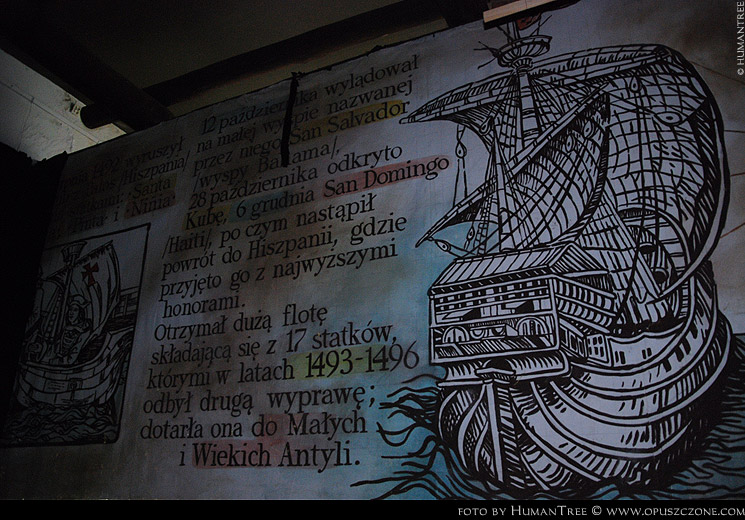 wyruszył
/Hiszpania/
Santa
i Ninia
12 października wylądował
na małej wyspie nazwanej
przez niego San Salvador
/wyspy Bahama/,
28 października odkryto
Kubę, 6 grudnia San Domingo
/Haiti/, po czym nastąpił
powrót do Hiszpanii, gdzie
przyjęto go z najwyższymi
honorami.
Otrzymał dużą flotę
składającą się z 17 statków,
którymi w latach 1493-1496
odbył drugą wyprawę;
dotarła ona do Małych
i Wiekich Antyli.
© HUMANTREE
FOTO BY HUMANTREE © WWW.OPUSZCZONE.COM